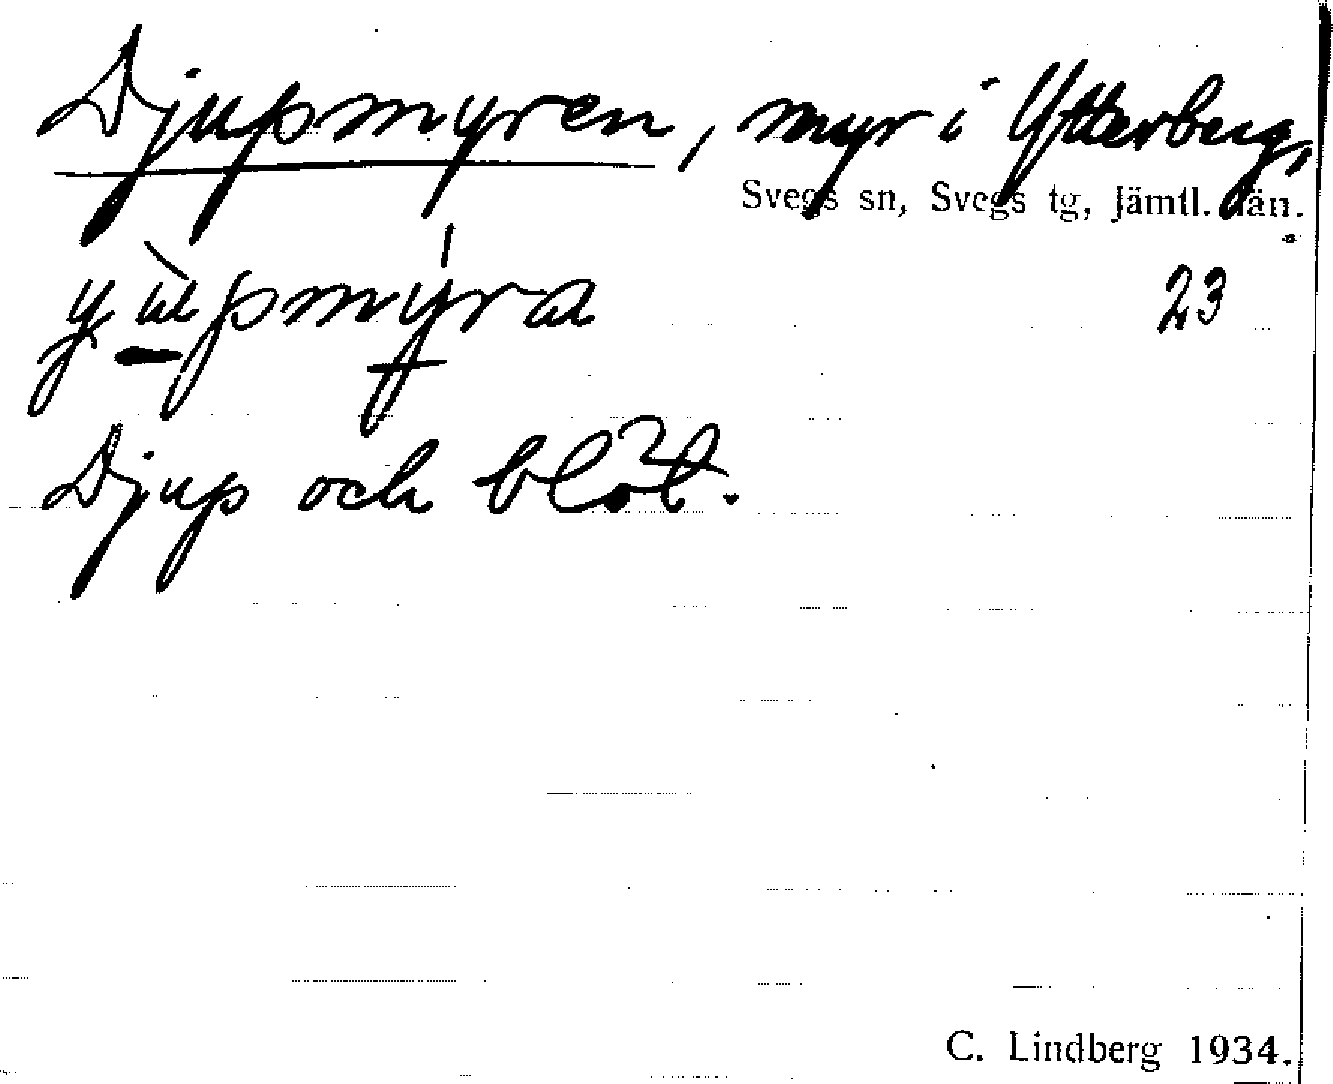 Djupmyren, myr i Ytterberg,
Svegs sn, Svegs tg, Jämtl. län.
yu̠̇̀pmýra 23
Djup och blöt.
C. Lindberg 1934.